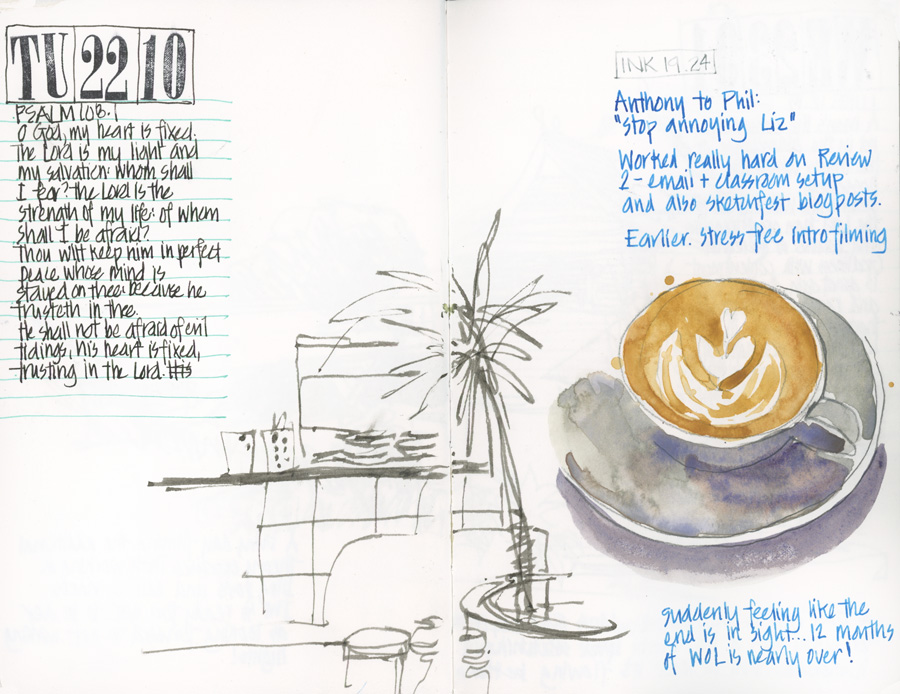 TU 22 10
PSALM 108.1
O God, my heart is fixed.
The Lord is my light and
my salvation: whom shall
I fear? the Lord is the
strength of my life: of whom
shall I be afraid?
Thou wilt keep him in perfect
peace whose mind is
stayed on thee: because he
trusteth in thee.
He shall not be afraid of evil
tidings, his heart is fixed,
trusting in the Lord.
INK 19.24
Anthony to Phil:
"Stop annoying Liz"
Worked really hard on Review
2 - email + classroom setup
and also sketchfest blogposts.
Earlier. stress-free Intro filming
suddenly feeling like the
end is in sight... 12 months
of WOL is nearly over!